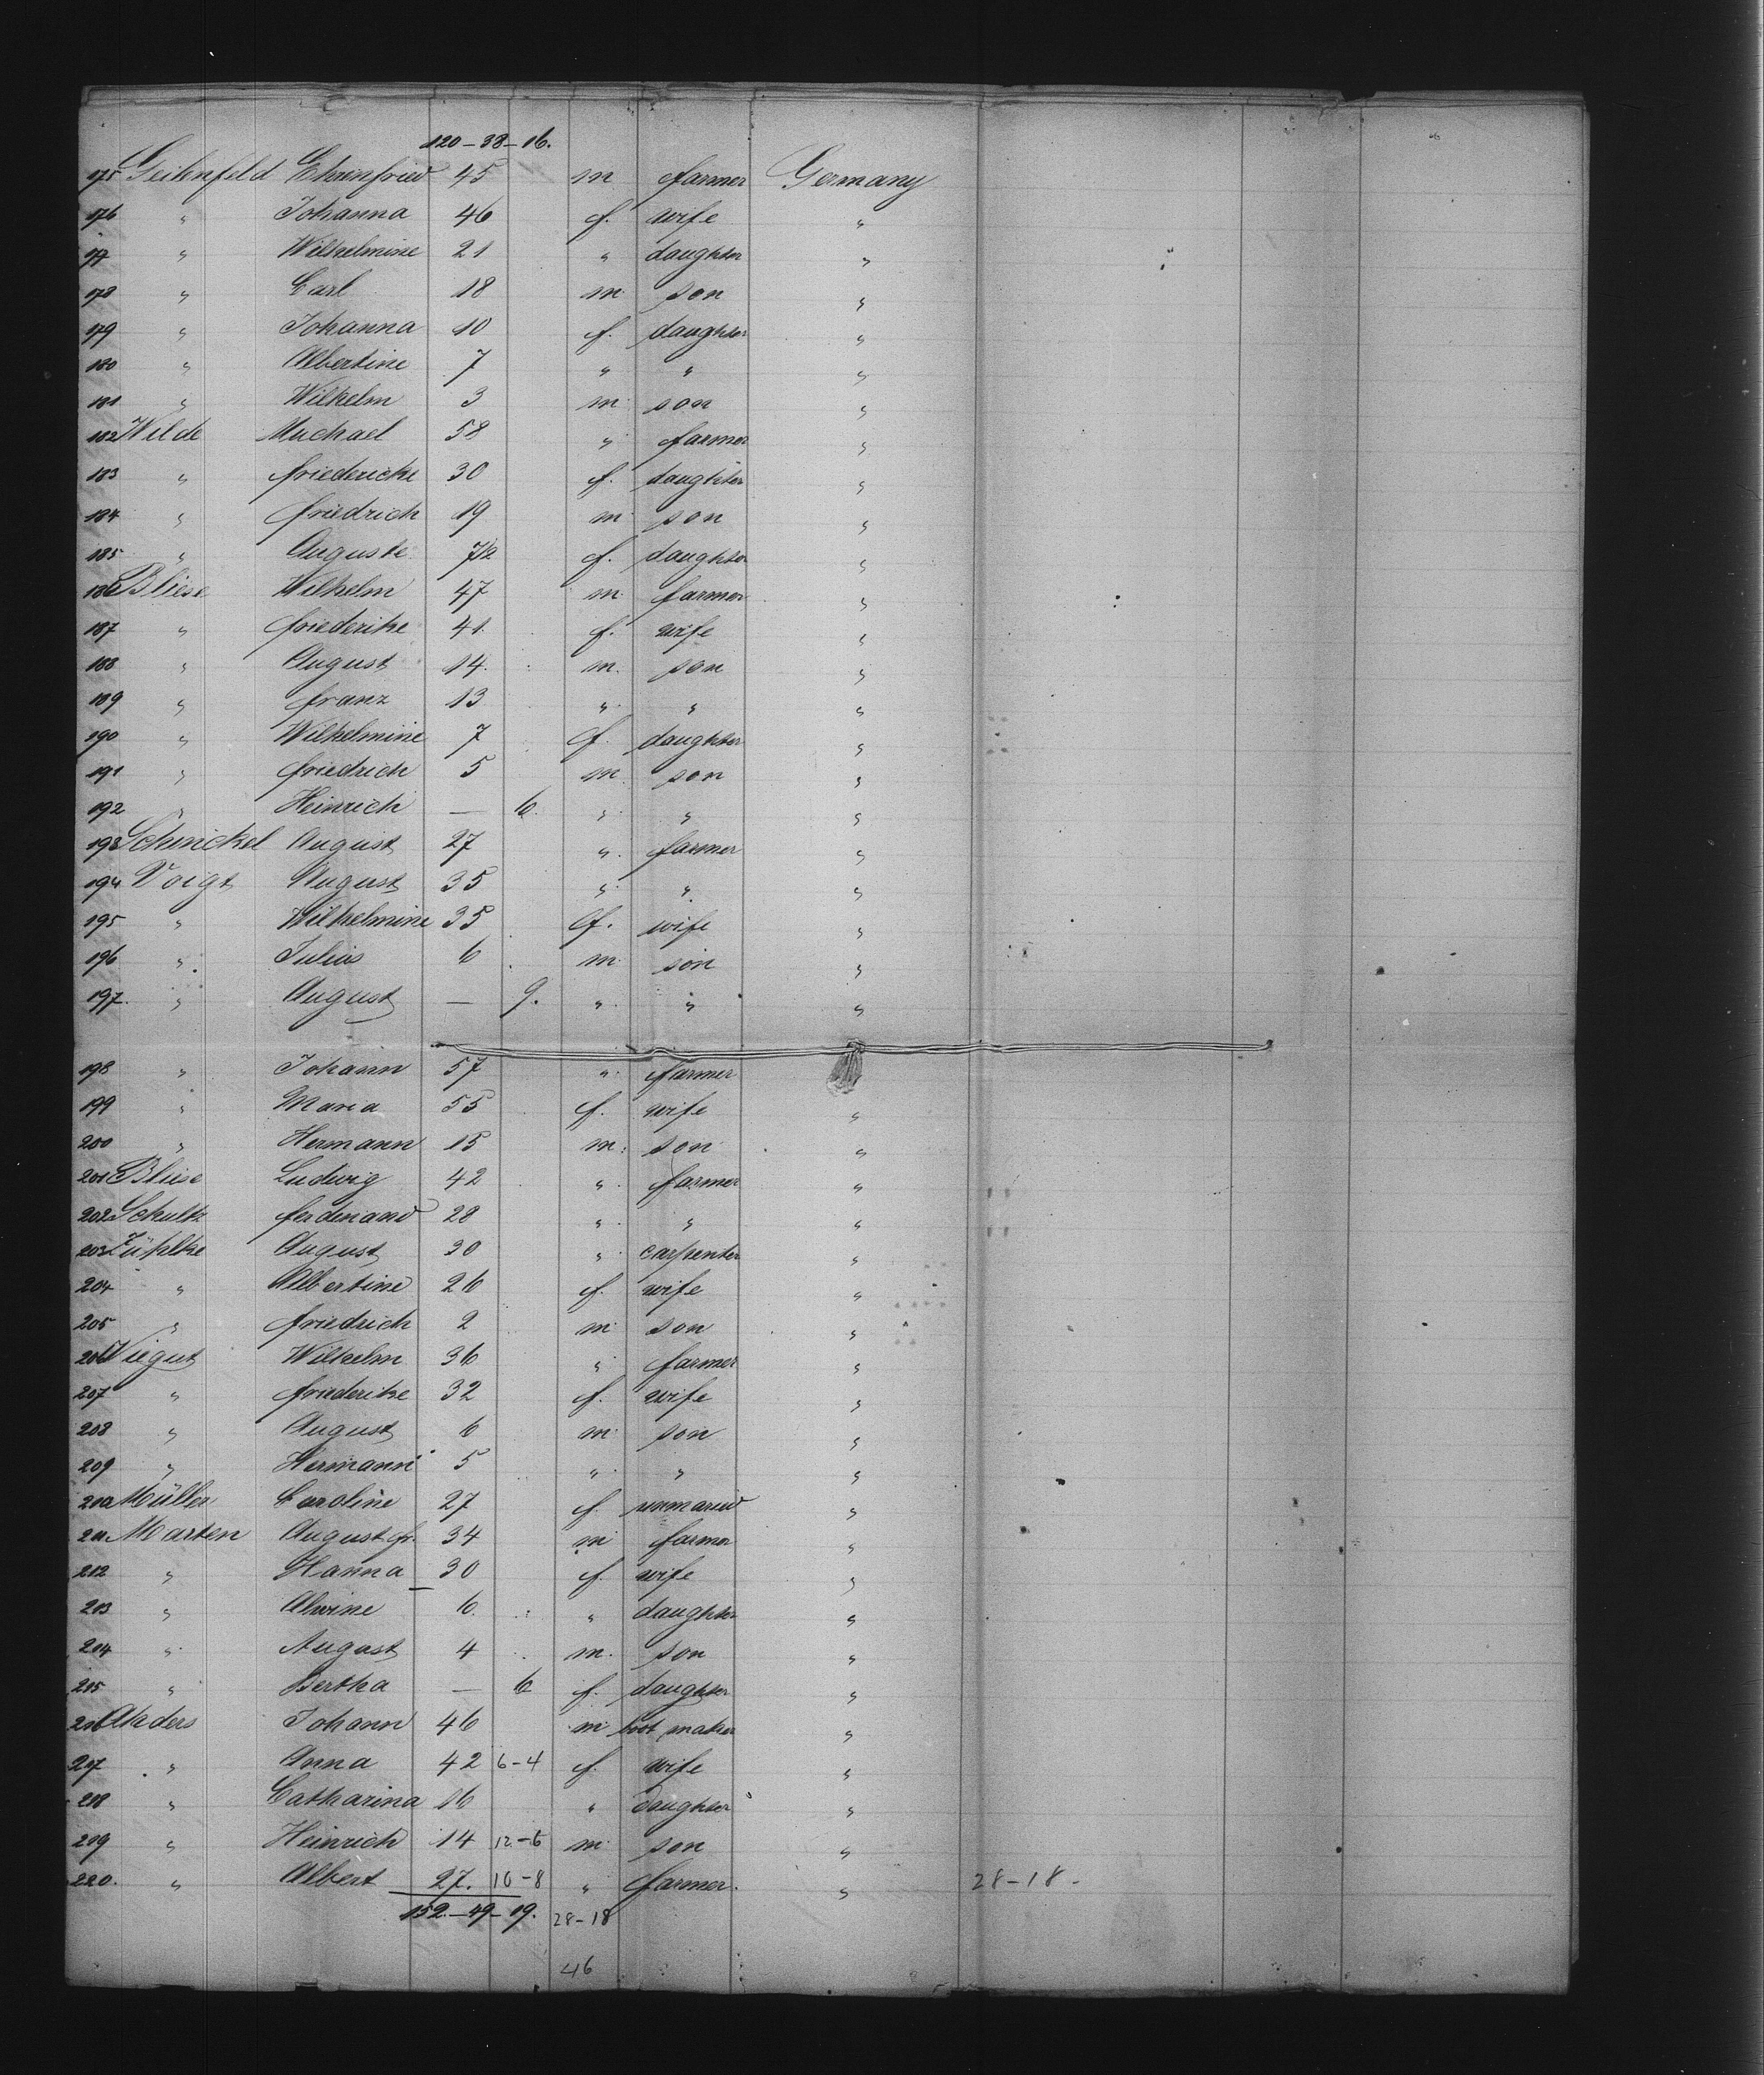 120 - 38 - 16.
175 Geilenfeld Ehrenfried 45 m farmer Germany
176 " Johanna 46 f. wife "
177 " Wilhelmine 21 " daughter "
178 " Carl 18 m son "
179 " Johanna 10 f. daughter "
180 " Albertine 7 " " "
181 " Wilhelm 3 m son "
182 Wilde Michael 58 " farmer "
183 " friedericke 30 f. daughter "
184 " friedrich 19 m son "
185 " Auguste 7/2 f. daughter "
186 Bliese Wilhelm 47 m farmer "
187 " friederike 41. f. wife "
188 " August 14. m. son "
189 " franz 13 " " "
190 " Wilhelmine 7 f. daughter "
191 " friedrich 5 m son "
192 " Heinrich — 6. " " "
193 Schinckel August 27 " farmer "
194 Voigt August 35 " " "
195 " Wilhelmine 35 f. wife "
196 " Julius 6 m son "
197. " August — 9. " " "
198 " Johann 57 " farmer
199 " Maria 55 f. wife "
200 " Hermann 15 m. son "
201 Bliese Ludwig 42 " farmer "
202 Schultz ferdinand 28 " " "
203 Zühlke August 30 " carpenter "
204 " Albertine 26 f. wife "
205 " friedrich 2 m son "
206 Viegut Wilhelm 36 " farmer "
207 " friederike 32 f. wife "
208 " August 6 m son "
209 " Hermann 5 " " "
210 Müller Caroline 27 f. unmaried "
211 Marten August fr. 34 m farmer "
212 " Hanna 30 f. wife "
213 " Alwine 6. " daughter "
214 " August 4 m. son "
215 " Bertha — 6 f. daughter "
216 Ahders Johann 46 m boot maker "
217 " Anna 42 6-4 f. wife "
218 " Catharina 16 " daughter "
219 " Heinrich 14 12-6 m. son "
220. " Albert 27. 10-8 " farmer. " 28-18-
152. - 49 - 19. 28-18
46